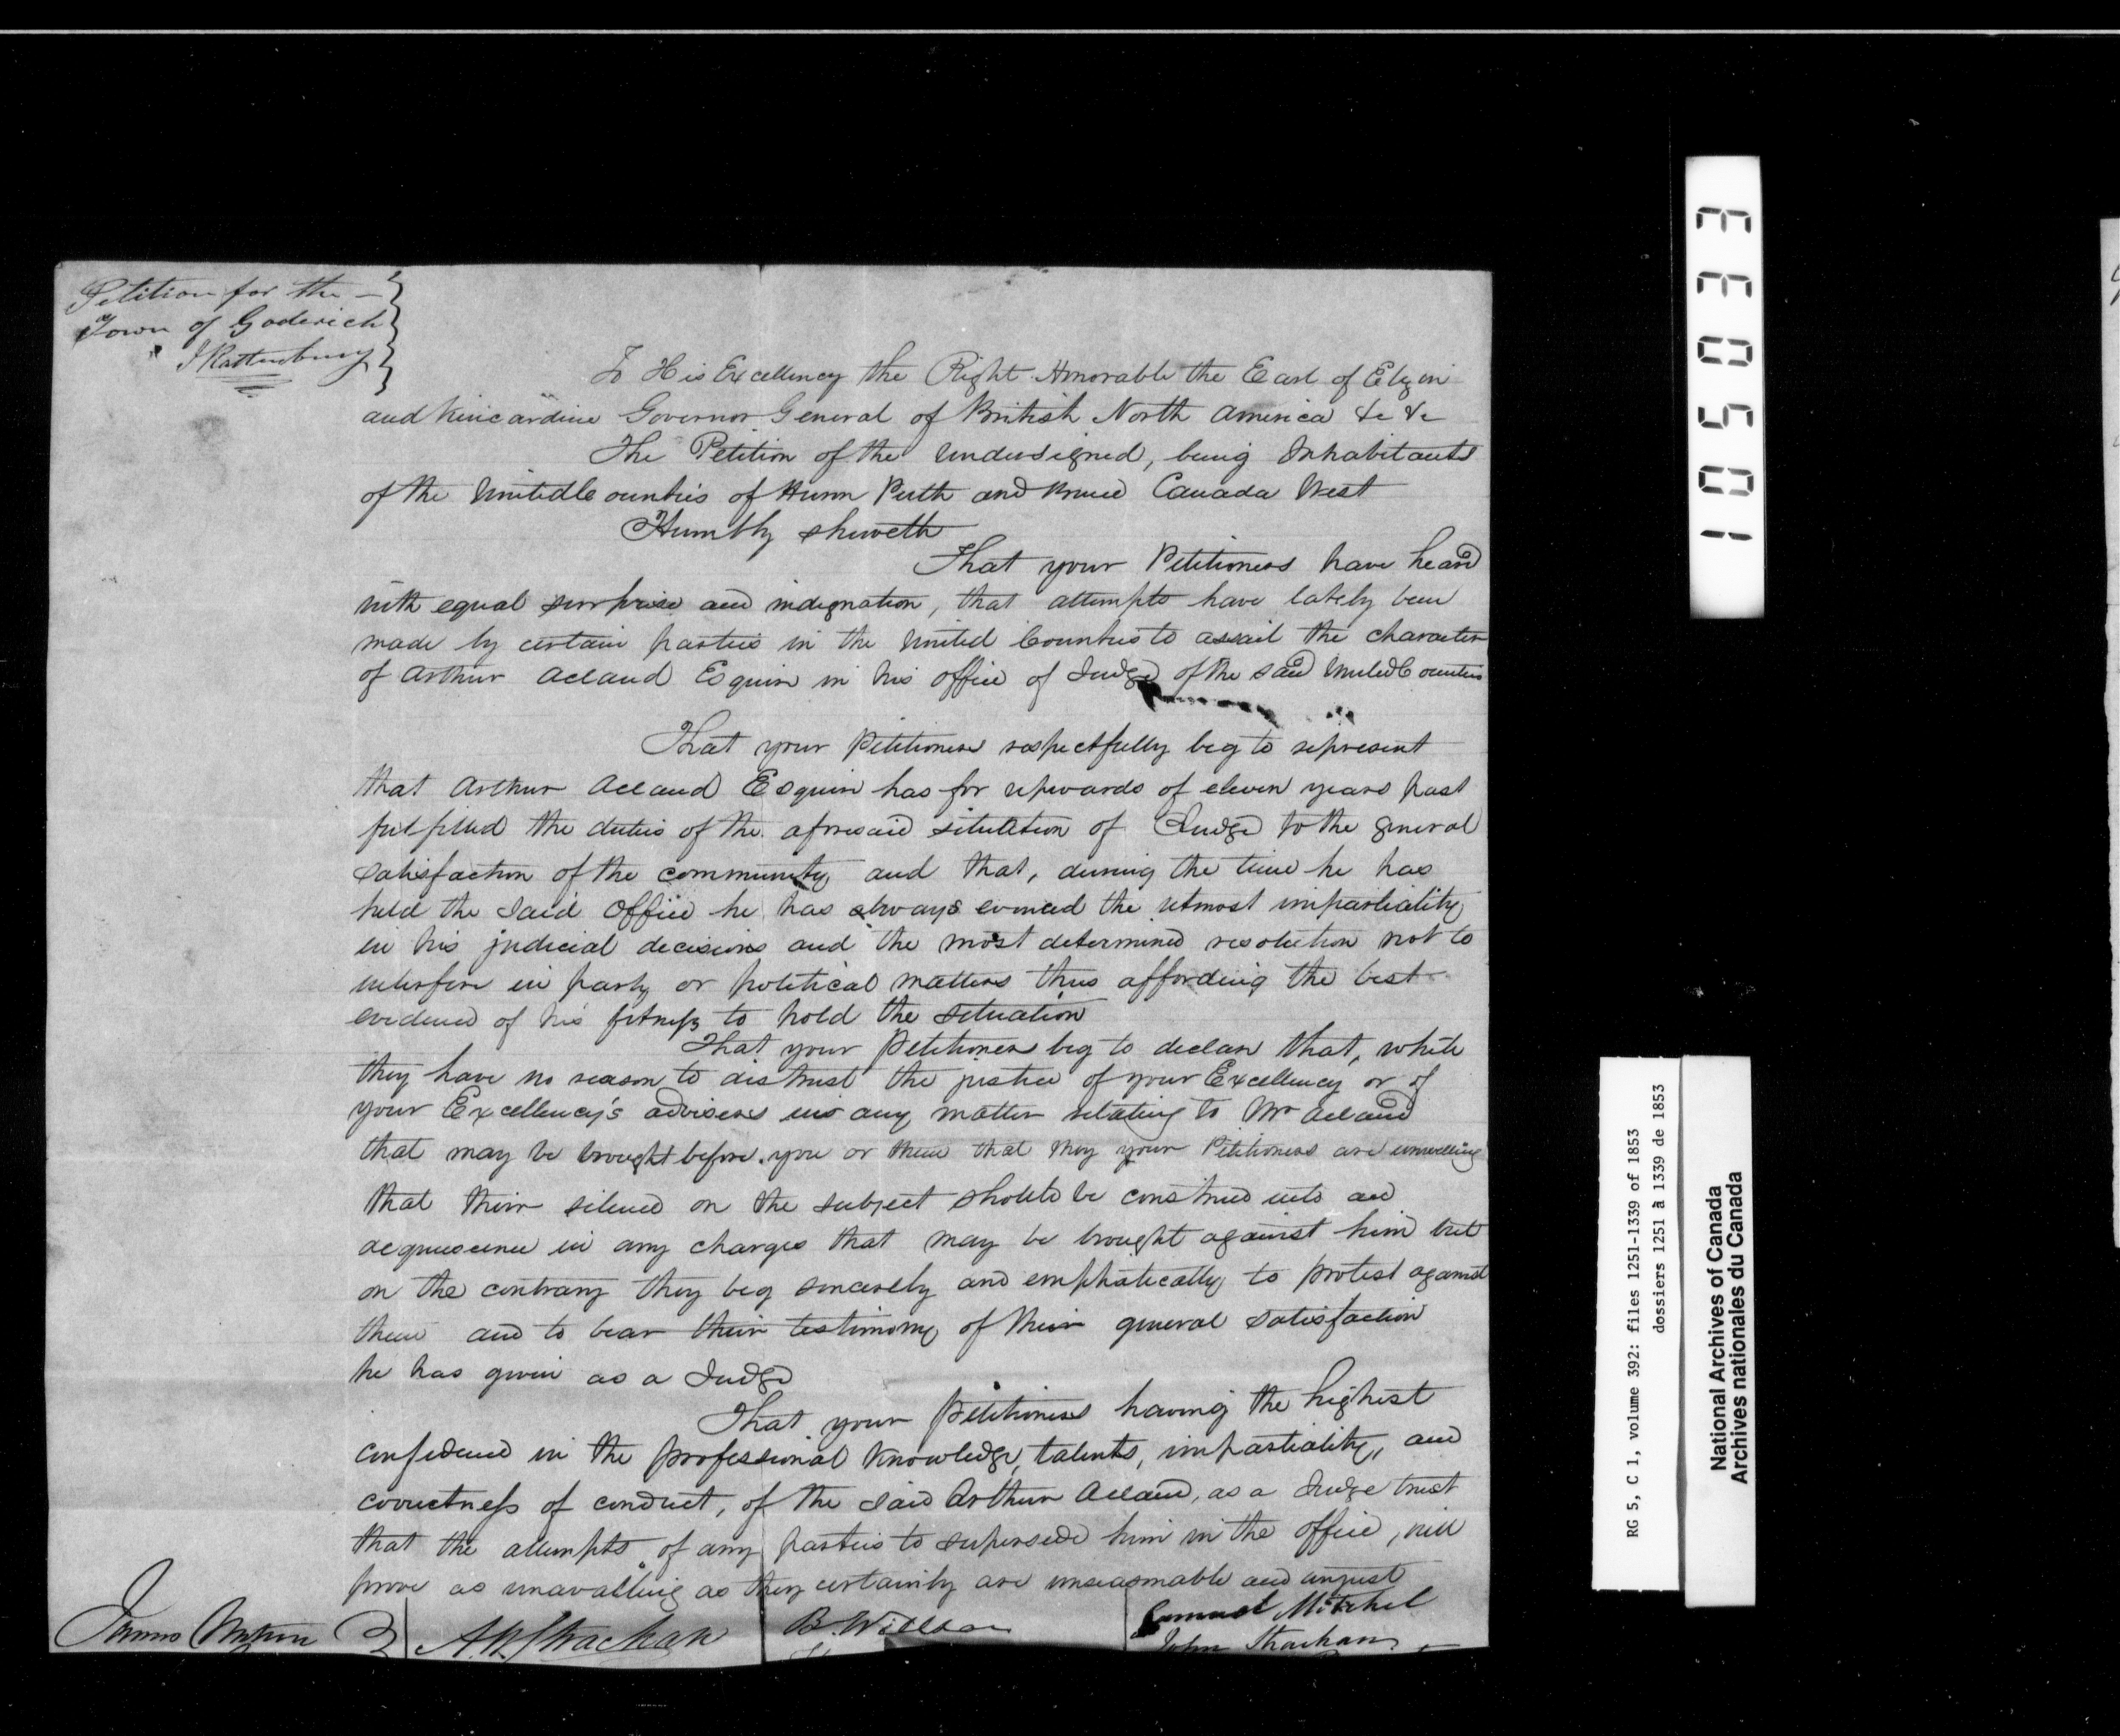 Petition for the —
Town of Goderich
J Rattenbury
To His Excellency the Right Honorable the Earl of Elgin
and Kincardine Governor General of British North America &c &c
The Petition of the undersigned, being Inhabitants
of the United Counties of Huron Perth and Bruce Canada West
Humbly sheweth
That your Petitioners have heard
with equal surprise and indignation, that attempts have lately been
made by certain parties in the United Counties to assail the character
of Arthur Acland Esquire in his office of Judge of the said United Counties
That your Petitioners respectfully beg to represent
that Arthur Acland Esquire has for upwards of eleven years past
fulfilled the duties of the aforesaid situation of Judge to the general
satisfaction of the community and that, during the time he has
held the said Office he has always evinced the utmost impartiality
in his judicial decisions and the most determined resolution not to
interfere in party or political matters thus affording the best
evidence of his fitness to hold the situation
That your Petitioners beg to declare that, while
they have no reason to distrust the justice of your Excellency or of
your Excellency's advisers in any matter relating to Mr Acland
that may be brought before you or them that they your Petitioners are unwilling
that their silence on the subject should be construed into an
acquiescence in any charges that may be brought against him but
on the contrary they beg sincerely and emphatically to protest against
them and to bear their testimony of their general satisfaction
he has given as a Judge
That your Petitioners having the highest
confidence in the professional knowledge, talents, impartiality, and
correctness of conduct, of the said Arthur Acland, as a Judge trust
that the attempts of any parties to supersede him in the office, will
prove as unavailing as they certainly are unseasonable and unjust
James
A. M. Strachan
B. Willson
Samuel Mitchel
John Strachan
105033
RG 5, C 1, volume 392: files 1251-1339 of 1853
dossiers 1251 à 1339 de 1853
National Archives of Canada
Archives nationales du Canada